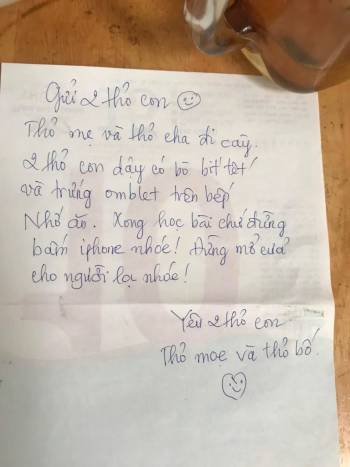 Gửi 2 thỏ con
Thỏ mẹ và thỏ cha đi cầy.
2 thỏ con dậy có bò bít tết
và trứng omblet trên bếp
Nhớ ăn. Xong học bài chứ đừng
bấm iphone nhóe! Đừng mở cửa
cho người lạ nhóe!
Yêu 2 thỏ con
Thỏ mẹ và thỏ bố.